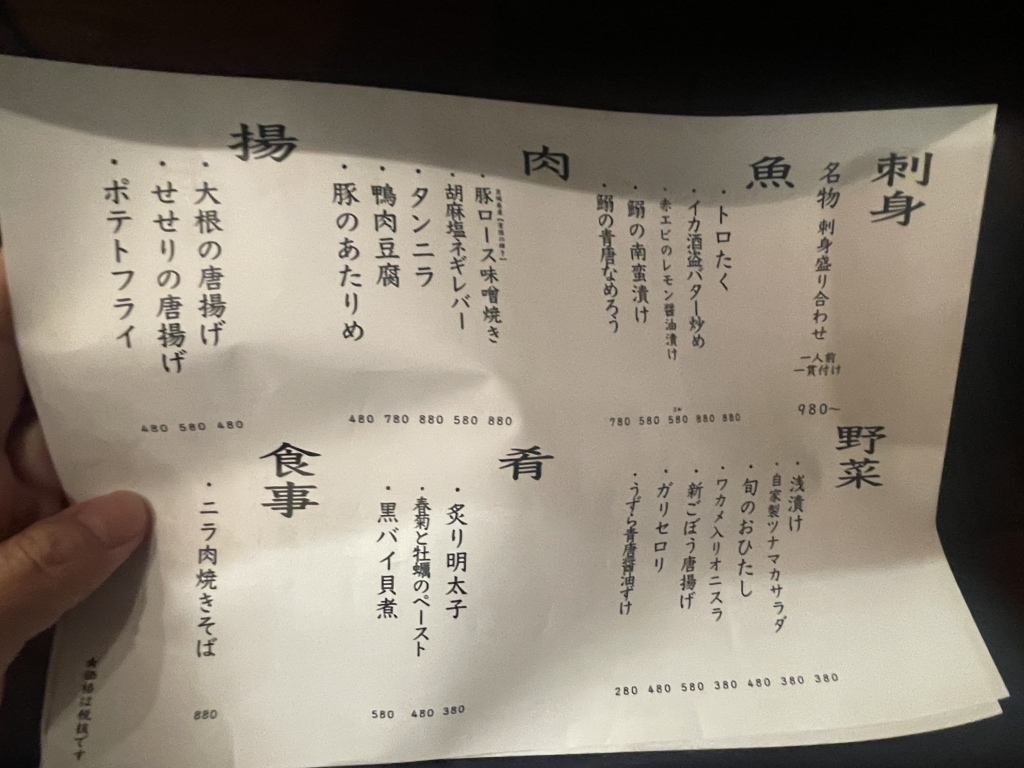 刺身
名物 刺身盛り合わせ
一人前
一貫付け
980~
魚
・トロたく
880
・イカ酒盗バター炒め
880
・赤エビのレモン醤油漬け
580
・鰯の南蛮漬け
580
・鰯の青唐なめろう
780
肉
・豚ロース味噌焼き
880
・胡麻塩ネギレバー
580
・タンニラ
880
・鴨肉豆腐
780
・豚のあたりめ
480
揚
・大根の唐揚げ
480
・せせりの唐揚げ
580
・ポテトフライ
480
野菜
・浅漬け
380
・自家製ツナマカサラダ
380
・旬のおひたし
480
・ワカメ入りオニスラ
380
・新ごぼう唐揚げ
580
・ガリセロリ
480
・うずら青唐醤油ずけ
280
肴
・炙り明太子
380
・春菊と牡蠣のペースト
480
・黒バイ貝煮
580
食事
・ニラ肉焼きそば
880
★価格は税抜です